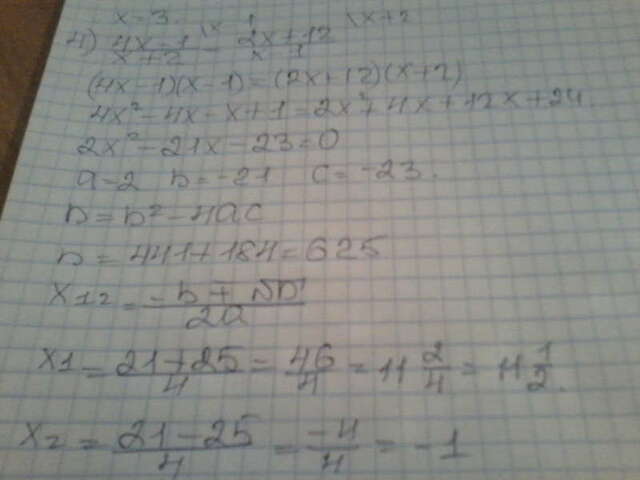 x=3.
4) (4x-1)/(x+2) \x-1 = (2x+12)/(x-1) \x+2
(4x-1)(x-1)=(2x+12)(x+2)
4x²-4x-x+1=2x²+4x+12x+24.
2x²-21x-23=0
a=2 b=-21 c=-23.
D=b²-4ac
D=441+184=625
x12=(-b±√D)/2a
x1=(21+25)/4=46/4=11 2/4=11 1/2.
x2=(21-25)/4=-4/4=-1